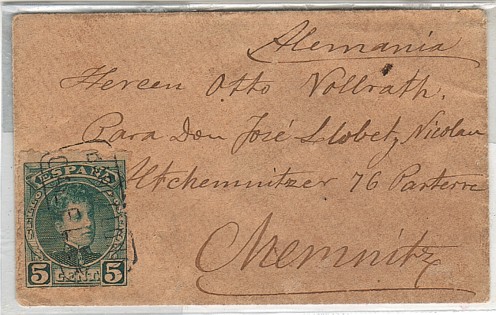 Alemania
Herren Otto Vollrath.
Para Don José Llobet, Nicolau
Altchemnitzer 76 Parterre
Chemnitz
ESPAÑA
5 CENT. 5